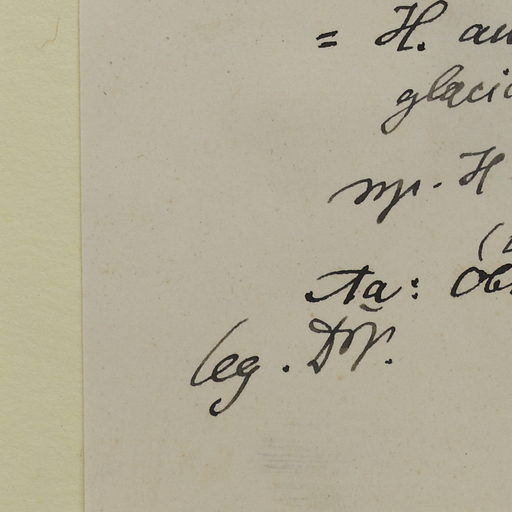 = H. au
glaci
ssp. H
Aa: Ob
leg.